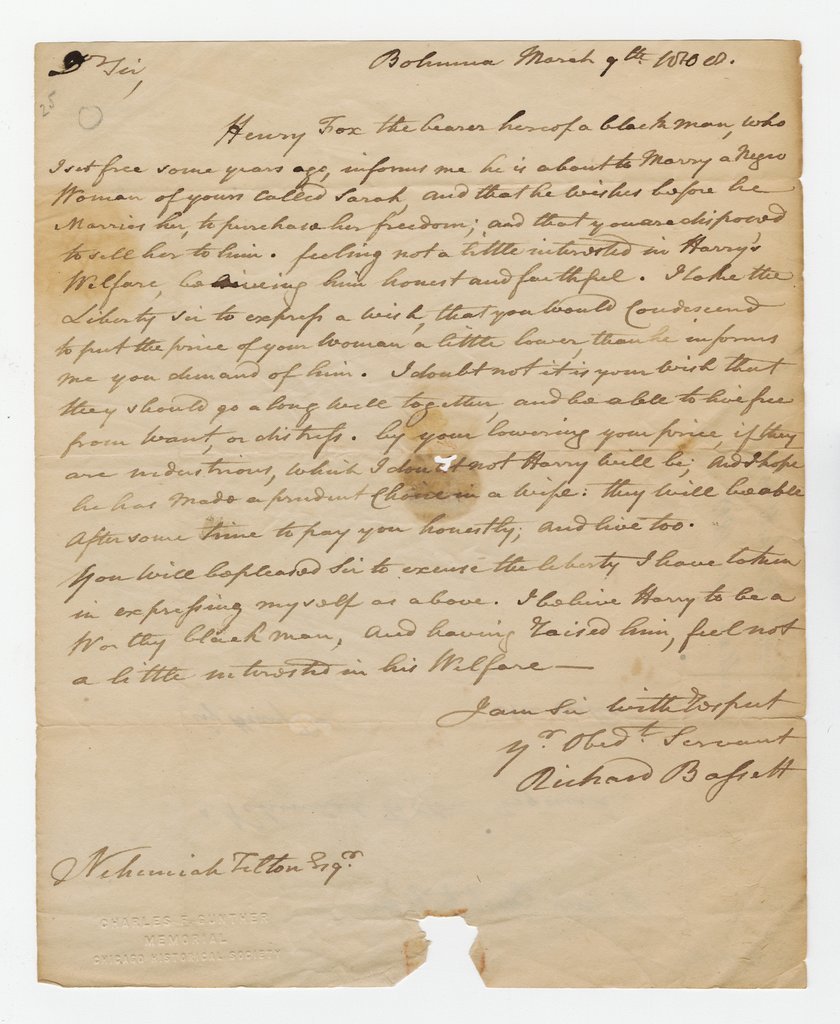 Dr Sir,
Bohemia March 9th 1808.
25
Henry Fox the bearer hereof a black man, who
I set free some years ago, informs me he is about to Marry a Negro
Woman of yours called Sarah, and that he wishes before he
Marries her, to purchase her freedom; and that you are disposed
to sell her to him. feeling not a little interested in Harry's
Welfare, believing him honest and faithful. I take the
Liberty Sir to express a wish, that you would Condescend
to put the price of your woman a little lower, than he informs
me you demand of him. I doubt not it is your wish that
they should go along well together, and be able to live free
from want, or distress. by your lowering your price, if they
are industrious, which I doubt not Harry will be; And I hope
he has Made a prudent Choice in a wife: they will be able
After some time to pay you honestly; and live too.
You will be pleased Sir to excuse the liberty I have taken
in expressing myself as above. I believe Harry to be a
Worthy black man, and having raised him, feel not
a little interested in his Welfare—
I am Sir with respect
Yr. Obedt. Servant
Richard Bassett
Nehemiah Tilton Esqr.
CHARLES F. GUNTHER
MEMORIAL
CHICAGO HISTORICAL SOCIETY